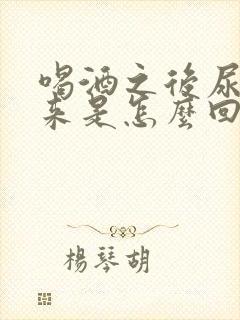 喝酒之後尿
来是怎麼回
楊琴胡